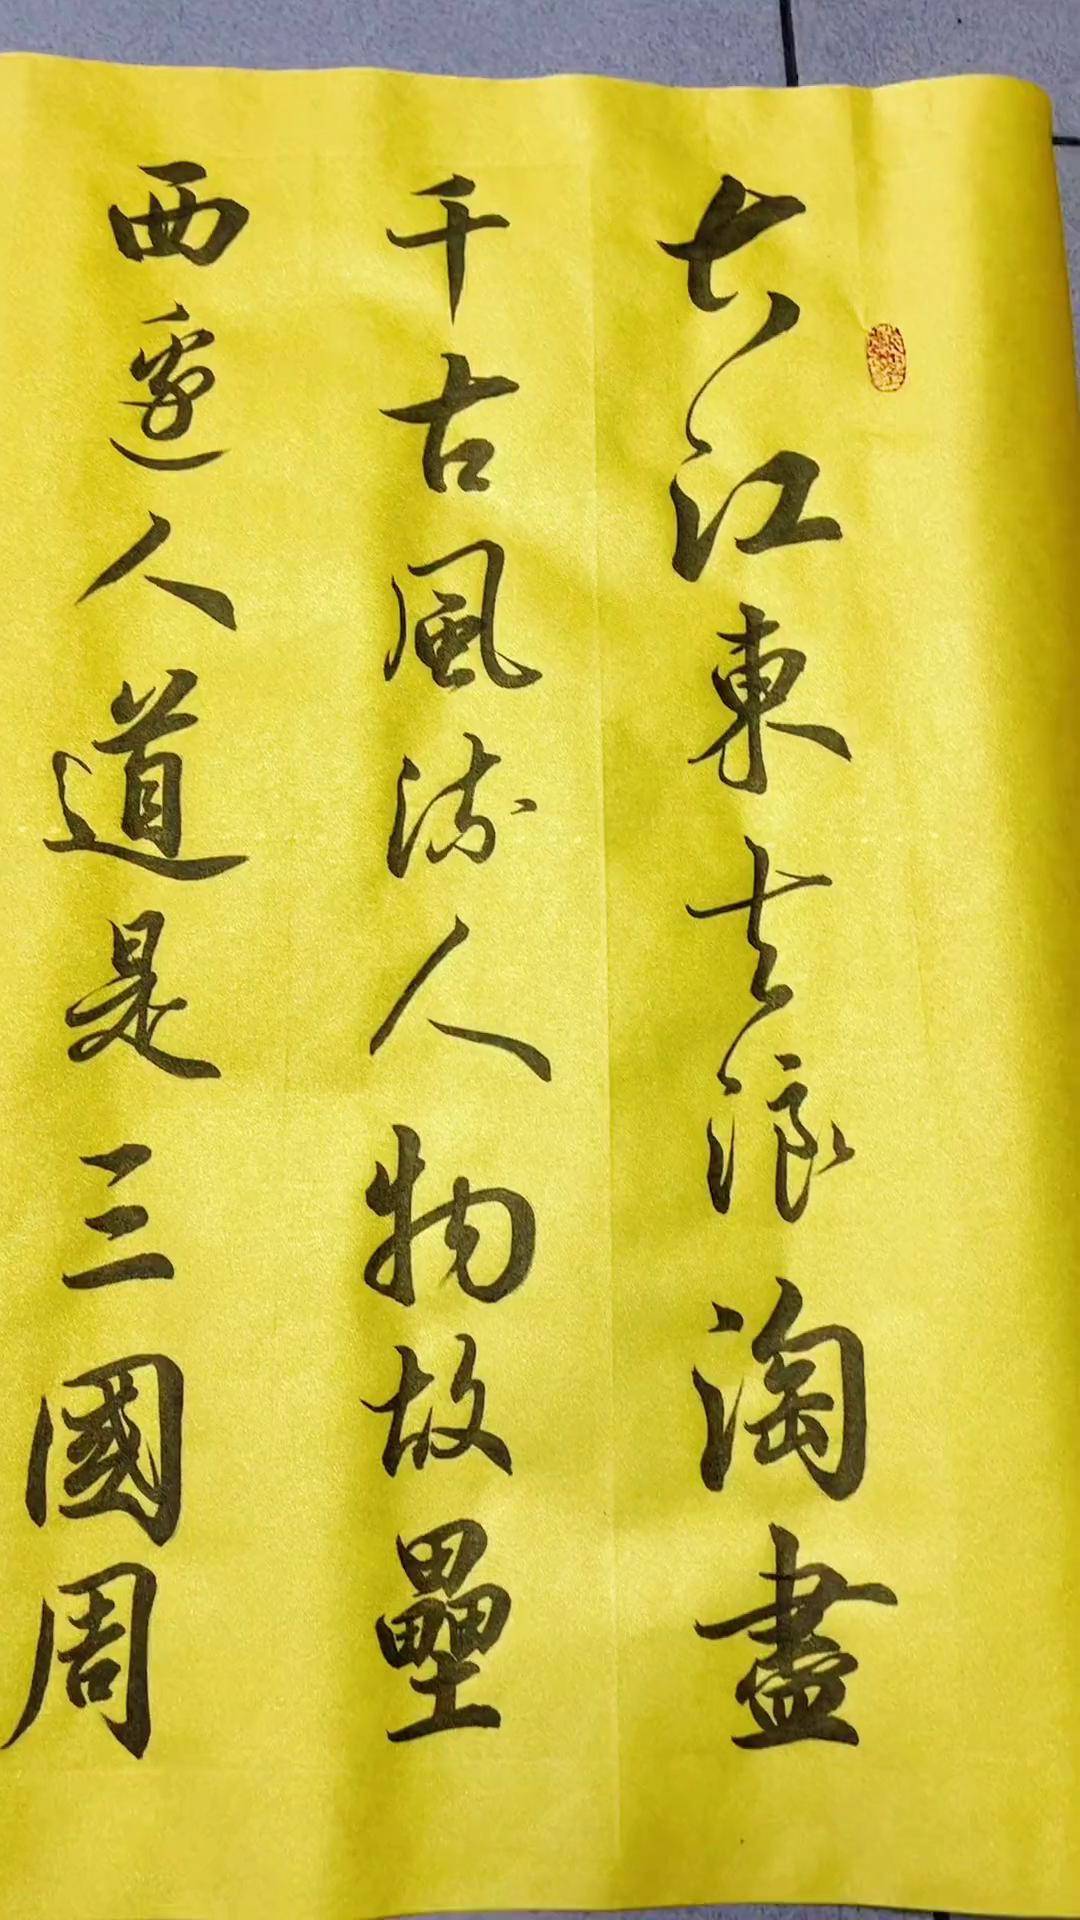 大江東去浪淘盡
千古風流人物故壘
西邊人道是三國周